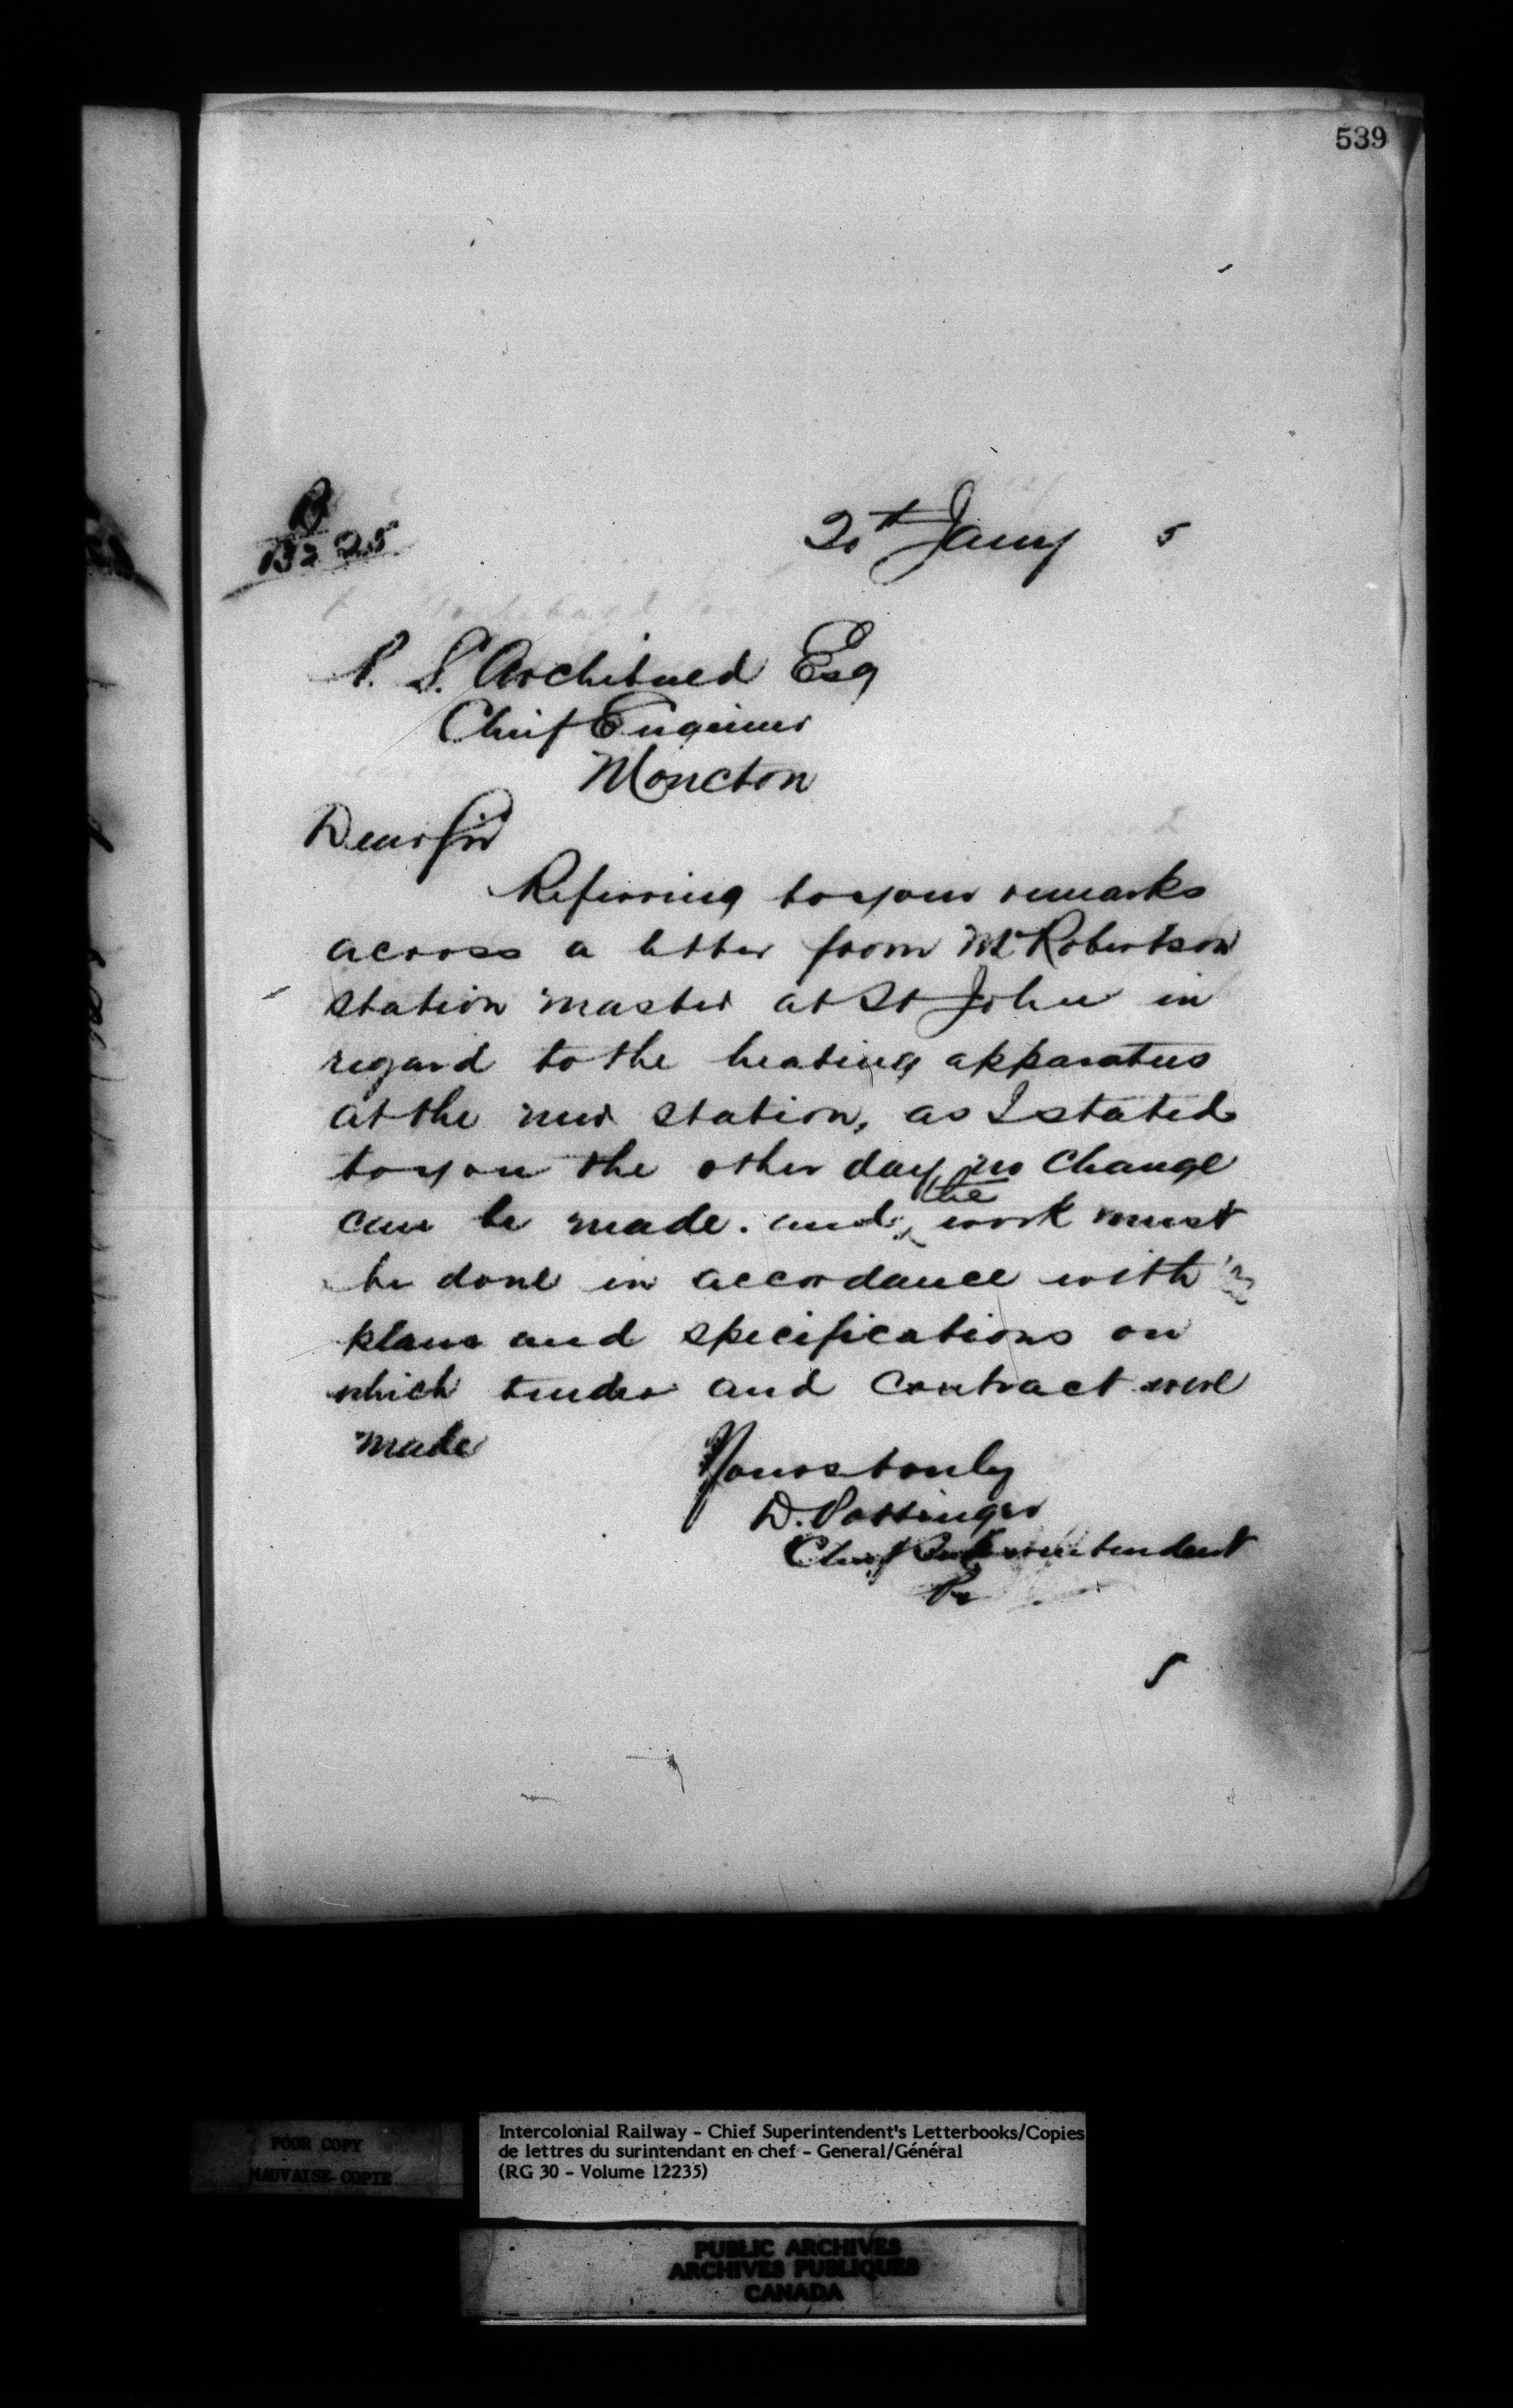 539
20th Jany 5
P. S. Archibald Esq
Chief Engineer
Moncton
Dear Sir
Referring to your remarks
across a letter from Mr Robertson
station master at St John in
regard to the heating apparatus
at the new station, as I stated
to you the other day, no change
can be made. and the work must
be done in accordance with
plans and specifications on
which tender and contract were
made
Yours truly
D. Pottinger
Chief Superintendent
Intercolonial Railway - Chief Superintendent's Letterbooks/Copies
de lettres du surintendant en chef - General/Général
(RG 30 - Volume 12235)
POOR COPY
MAUVAISE COPIE
PUBLIC ARCHIVES
ARCHIVES PUBLIQUES
CANADA